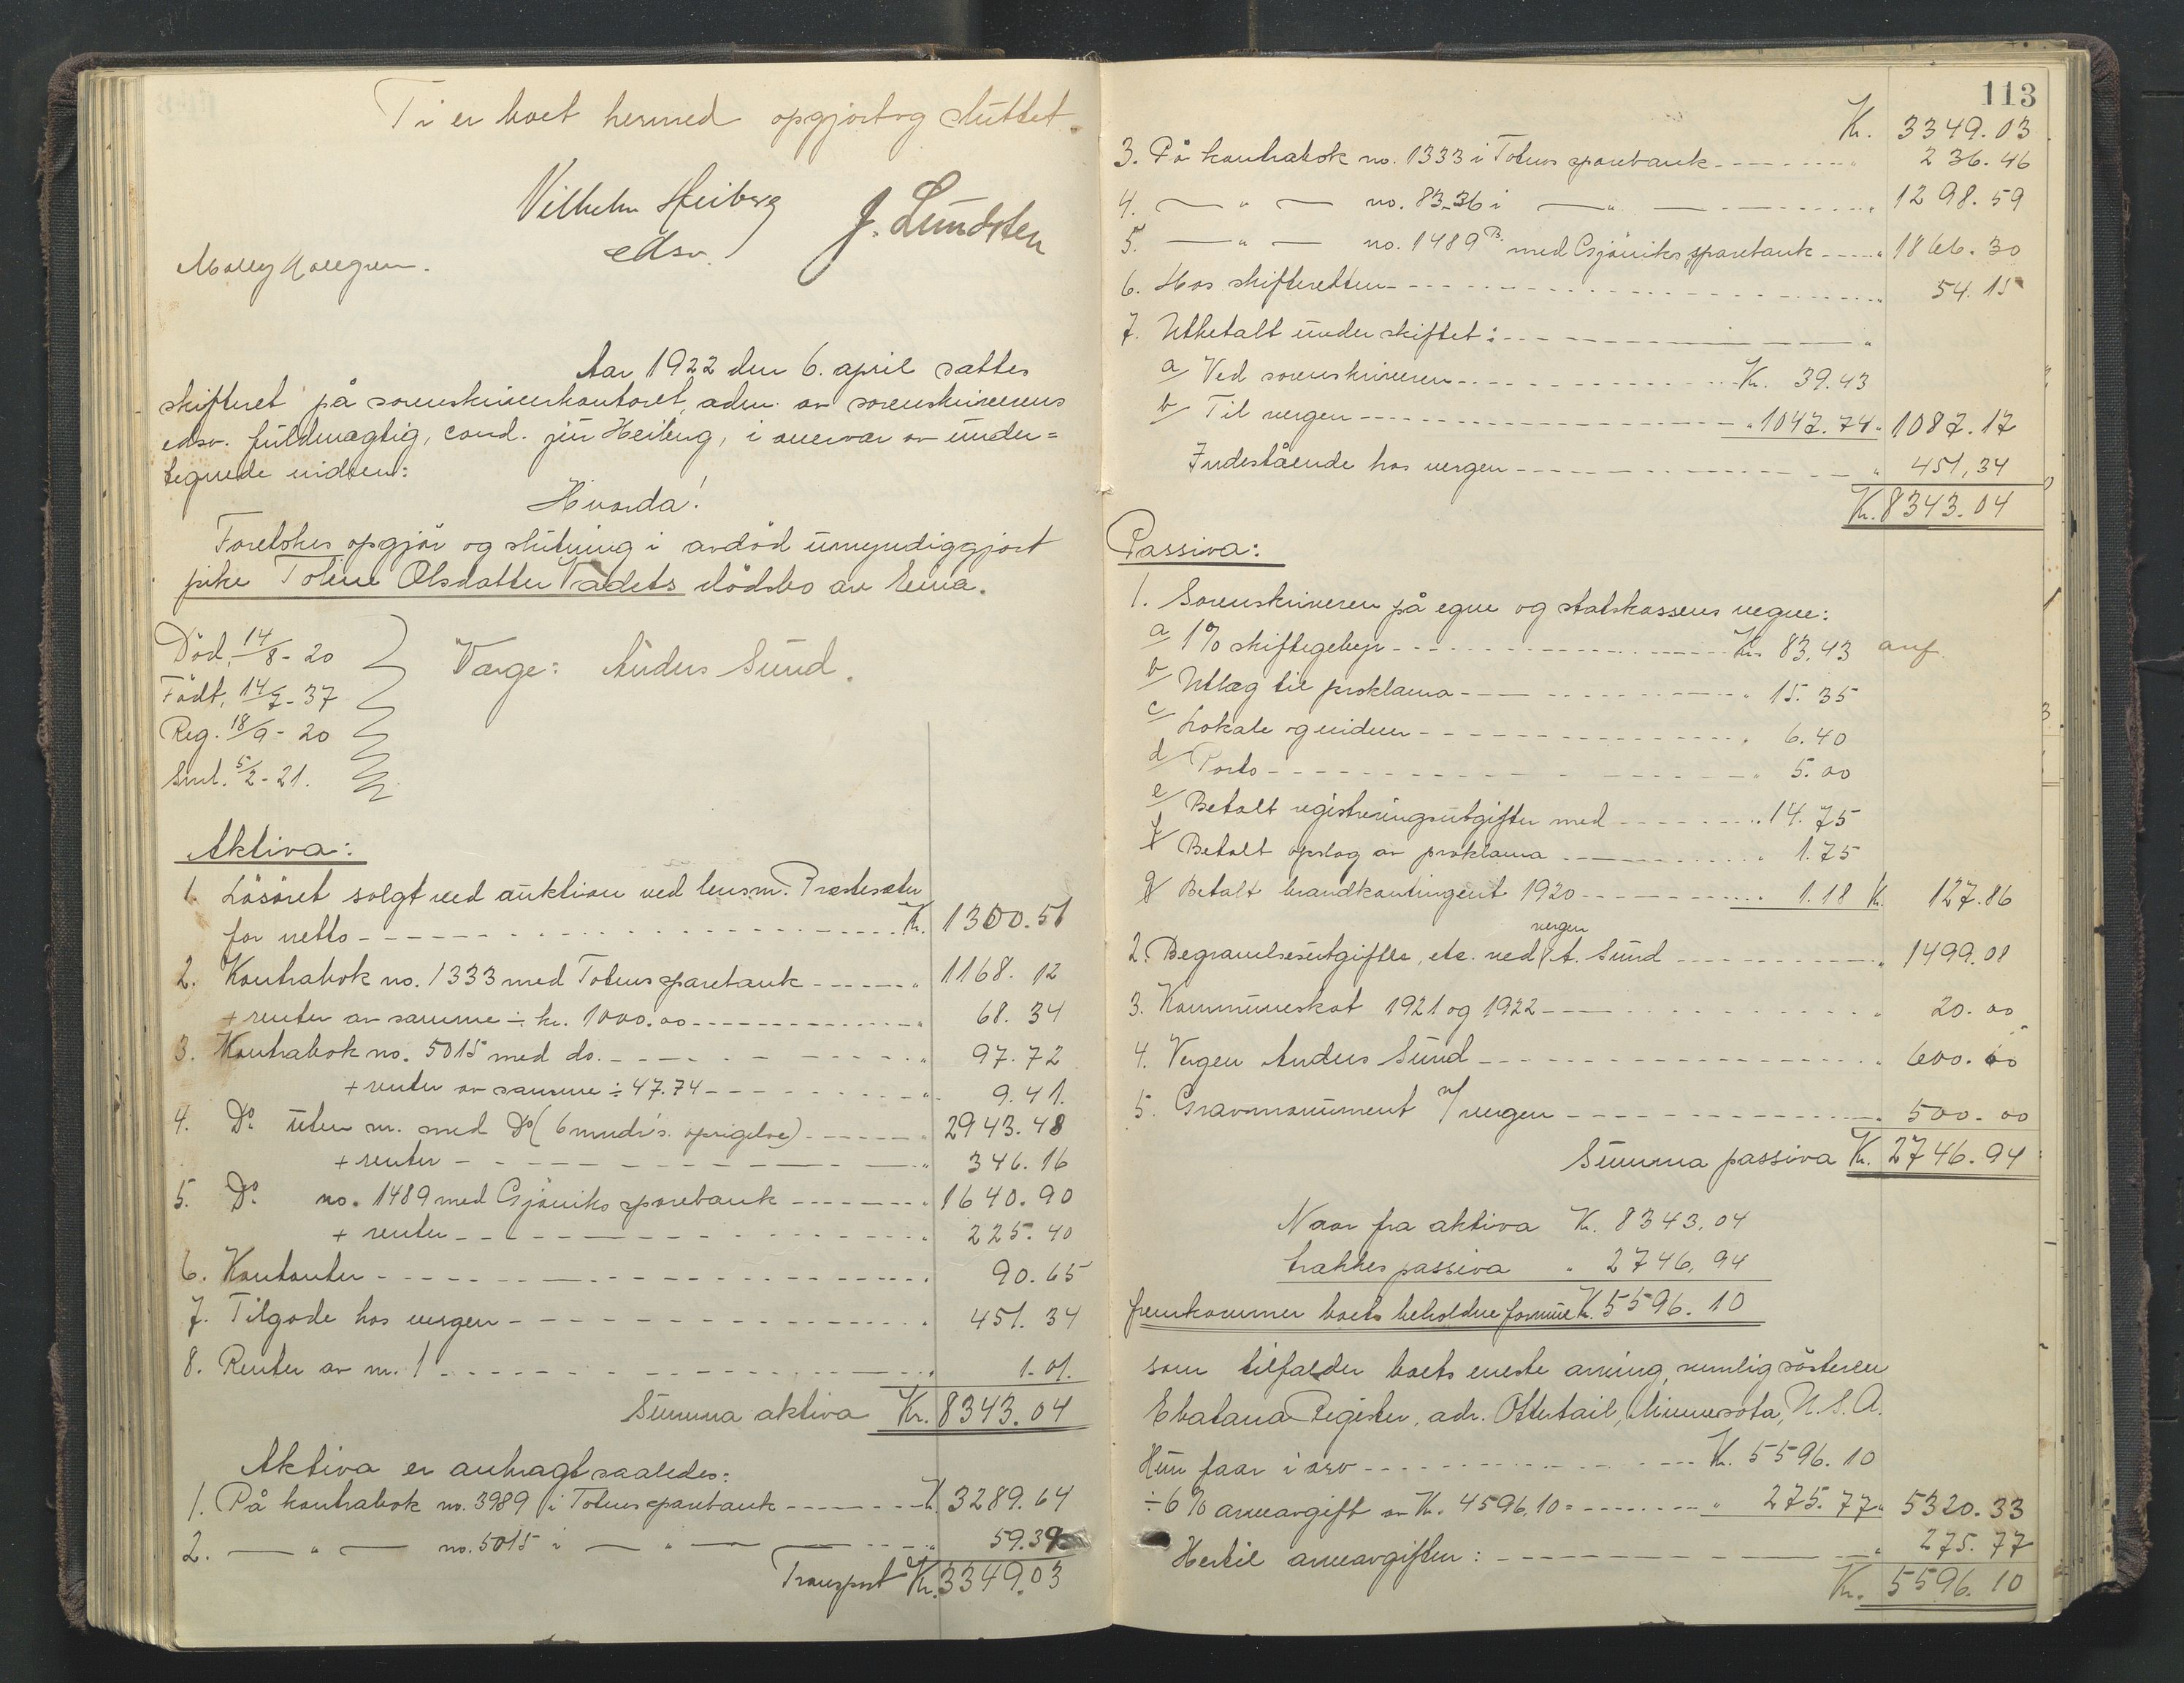 Ti er boet hermed opgjort og sluttet.
Vilhelm Heiberg
edsv.
J. Lundsten
Molly
Aar 1922 den 6. april sattes
skifteret på sorenskriverkontoret, adm. av sorenskriverens
edsv. fuldmægtig, cand. jur Heiberg, i overvær av under=
tegnede vidner:
Hvorda!
Foretokes opgjör og slutning i avdöd umyndiggjort
pike Toline Olsdatter Vadets dödsbo av Eina.
Död. 14/8 - 20
Födt. 14/7 - 37
Reg. 18/9 - 20
Smt. 5/2 - 21.
Værge: Anders Sund.
Aktiva:
1. Lösöret solgt ved auktion ved lensm. Præstesæter
for netto - - - Kr. 1300.51
2. Kontrabok no. 1333 med Totens sparebank - - - " 1168. 12
+ renter av samme ÷ kr. 1000.00 - - - " 68. 34
3. Kontrabok no. 5015 med do. - - - " 97. 72
+ renter av samme ÷ 47.74 - - - " 9. 41.
4. Do. uten nr. med Do (6 mndr's. opsigelse) - - - " 2943. 48
+ renter - - - " 346. 16
5. Do. no. 1489 med Gjöviks sparebank - - - " 1640. 90
+ renter - - - " 225. 40
6. Kontanter - - - " 90. 65
7. Tilgode hos vergen - - - " 451. 34
8. Renter av nr. 1 - - - " 1. 01.
Summa aktiva Kr. 8343. 04
Aktiva er anbragt saaledes:
1. På kontrabok no. 3989 i Totens sparebank - - - Kr. 3289. 64
2. — " — no. 5015 i — " — - - - " 59.39
Transport Kr. 3349.03
113
Kr. 3349. 03
3. På kontrabok no. 1333 i Totens sparebank - - - " 236. 46
4. — " — no. 8336 i — " — - - - " 1298. 59
5. — " — no. 1489 B. med Gjöviks sparebank - - - " 1866. 30
6. Hos skifteretten - - - " 54. 15
7. Utbetalt under skiftet: - - - "
a/ Ved sorenskriveren - - - Kr. 39.43
b/ Til vergen - - - " 1047. 74 " 1087. 17
Indestående hos vergen - - - " 451,34
Kr. 8343. 04
Passiva:
1. Sorenskriveren på egne og statskassens vegne:
a/ 1% skiftegebyr - - - Kr. 83,43 anf.
b/ Utlæg til proklama - - - " 15. 35
c/ Lokale og vidner - - - " 6. 40
d/ Porto - - - " 5. 00
e/ Betalt registreringsutgifter med - - - " 14. 75
f/ Betalt opslag av proklama - - - " 1. 75
g/ Betalt brandkontingent 1920 - - - " 1. 18 Kr. 127.86
2. Begravelsesutgifter, etc. ved vergen A. Sund - - - " 1499.08
3. Kommuneskat 1921 og 1922 - - - " 20. 00
4. Vergen Anders Sund - - - " 600. 00
5. Gravmonument v/ vergen - - - " 500. 00
Summa passiva Kr. 2746. 94
Naar fra aktiva Kr. 8343,04
trækkes passiva " 2746, 94
fremkommer boets beholdne formue Kr. 5596. 10
som tilfalder boets eneste arving, nemlig søsteren
Ebatana Register, adr. Ottertail, Minnesota, U. S. A.
Hun faar i arv - - - Kr. 5596. 10
÷ 6% arveavgift av Kr. 4596,10 = - - - " 275. 77 " 5320. 33
Hertil arveavgiften: - - - " 275. 77
Kr. 5596. 10